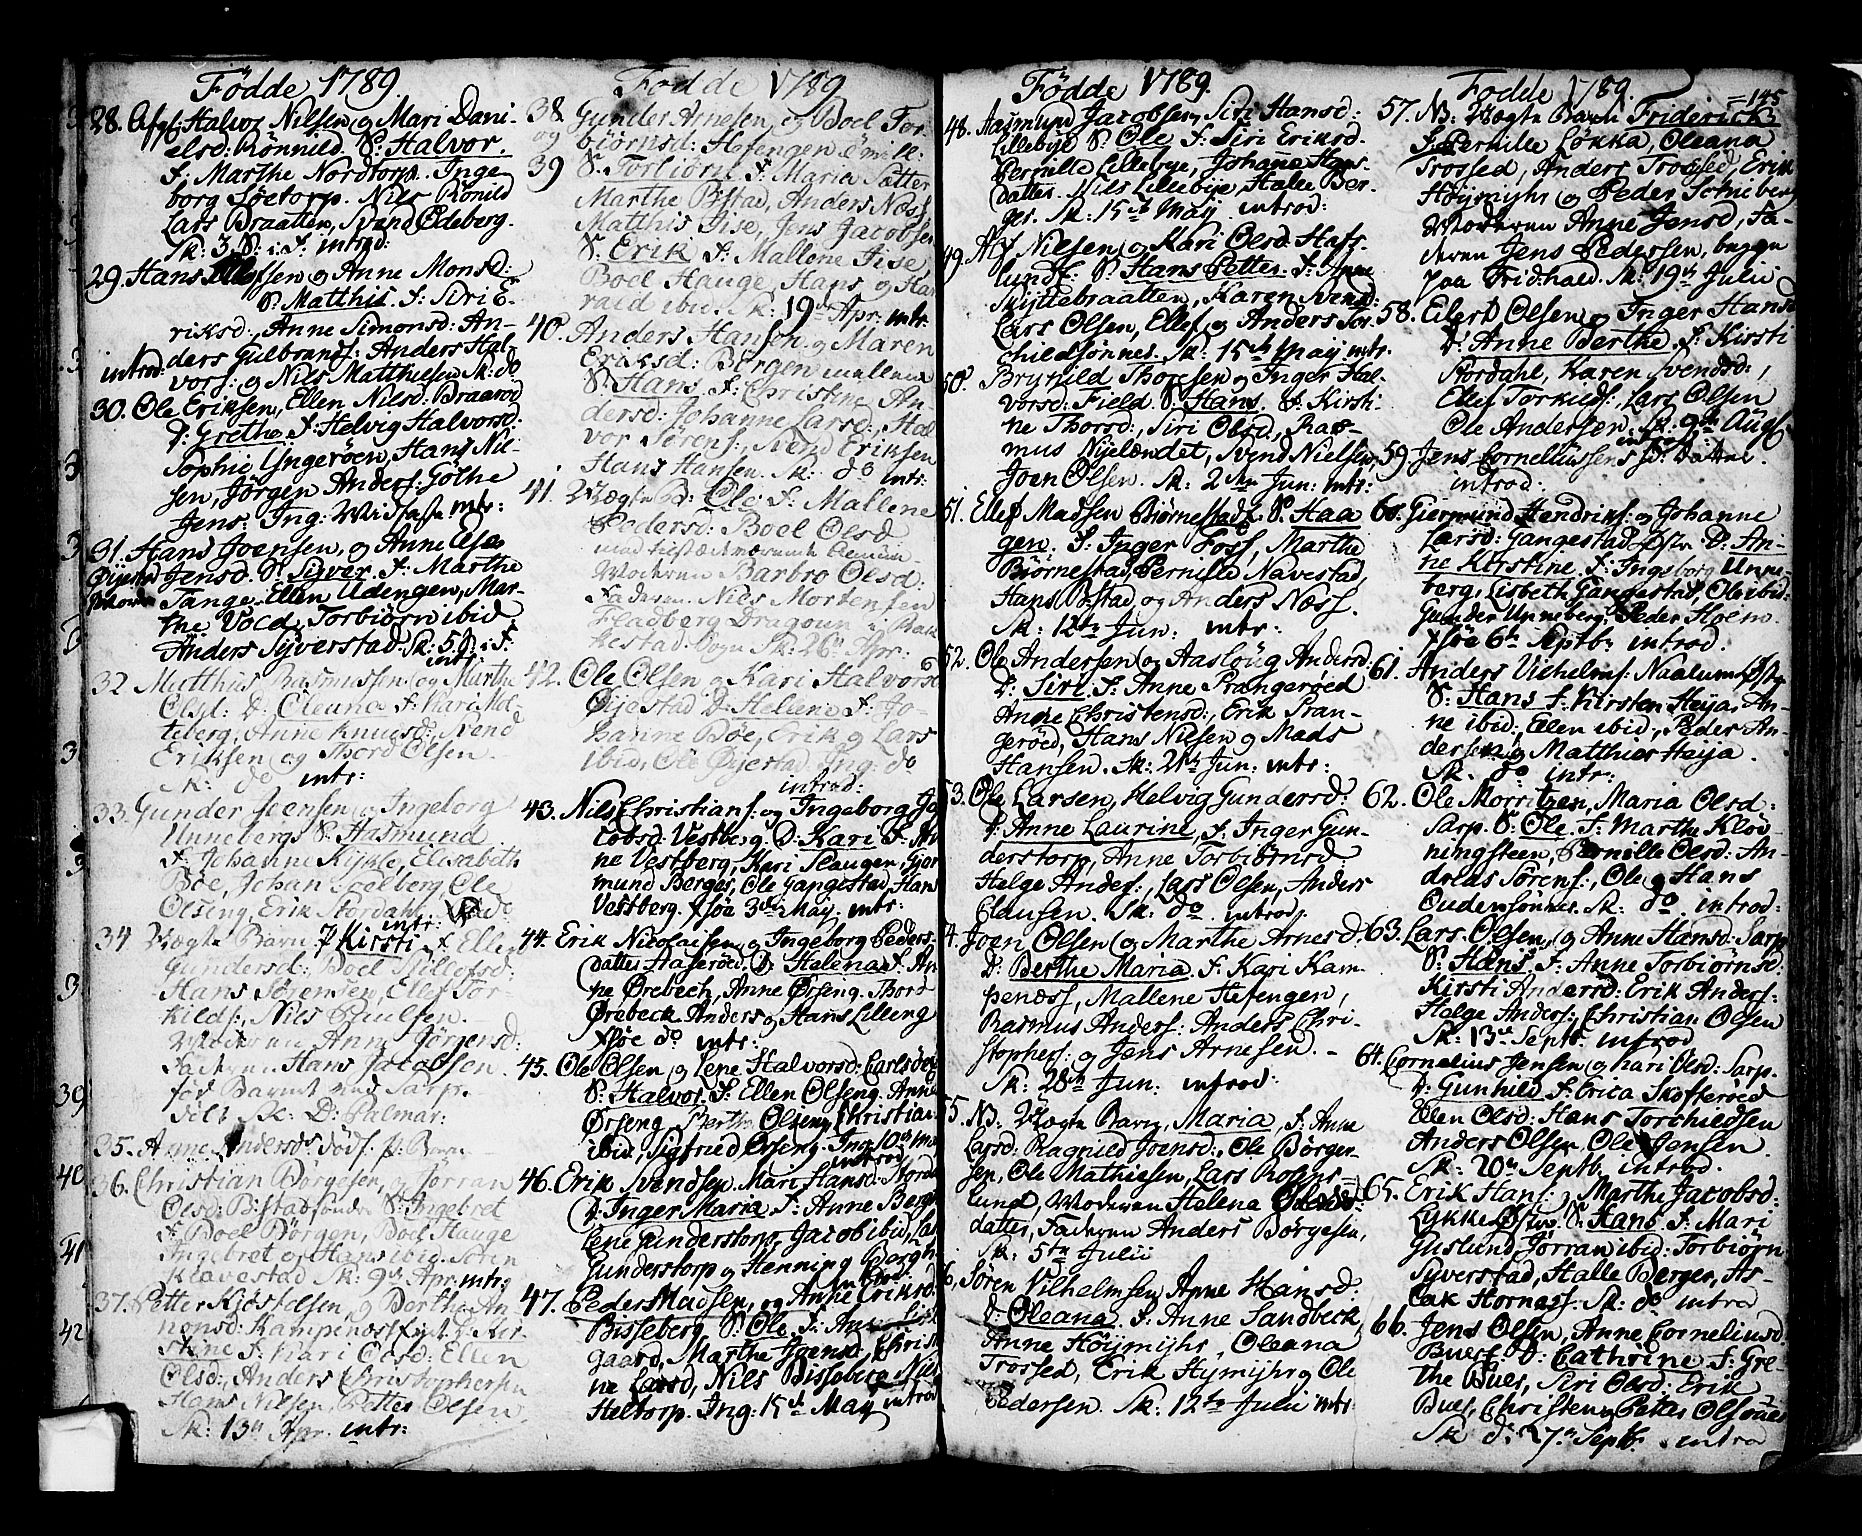 Födde 1789.
28. Afg: Halvor Nilsen og Mari Dani-
elsd: Rönnild S: Halvor.
F: Marthe Nordtorp. Inge
borg Söetorp. Nils Rönild
Lars Braatten, Svend Edeberg.
Sk: 3 S: i F. introd:
29. Hans Ellefsen og Anne Monsd:
S. Matthis. F: Siri E-
riksd:, Anne Simonsd: An-
ders Gulbrands: Anders Hal-
introd: vors: og Nils Matthiesen Sk: do
30. Ole Eriksen, Ellen Nilsd: Braaröd
D: Grethe F: Helvig Halvorsd:
Sophie Yngeröen, Hans Nil-
sen, Jörgen Anders: Göthe
Jens: Ing: intr:
31. Hans Joensen, og Anne Elsa
Jensd. S: Syver. F: Marthe
Tange, Ellen Udengen, Mar-
the Vold, Torbiörn ibid
Anders Syverstad. Sk: 5 S: i F.
intr:
32 Matthis Rasmussen og Marthe
Olsd: D: Oleana F: Kari Hol-
teberg, Anne Knudsd: Svend
Eriksen og Thord Olsen
Sk: do intr:
33. Gunder Jensen og Ingeborg
Unneberg S: Aasmund
F: Johanne Kykle, Elisabeth
Böe, Johan Ole
Olseng, Erik Stordahl Sk: do
intr:
34 Uægte Barn Kirsti F. Ellen
Gundersd: Boel
Hans Sörensen, Ellef Tor-
kilds:, Nils Paulsen.
Moderen Anne Jörgensd:
Faderen Hans Jacobsen
död Sk: D: Palmar:
35. Anne Andersds dödf. p: Barn
36. Christian Börgesen, og Jörran
Olsd: Bistad söndre S: Ingebret
F Boel Börgen, Boel Hauge
Ingebret og Hans ibid. Sören
Klavestad Sk: 9de Apr. intr:
37. Petter Kjöstelsen, og Berthe An-
nonsd: Kampenæs D: Ker-
stine F: Kari Olsd: Ellen
Olsd:, Anders Christophersen
Hans Nilsen, Petter Olsen
Sk: 13de Apr. intr:
Födde 1789
38. Gunder Arnesen, og Boel Tor-
og biörnsd: Hefengen
39 S. Torbiörn F. Maria
Marthe Bistad, Anders Næss
Matthis Fise, Jens Jacobsen
S: Erik F: Mallene Fise
Boel Hauge, Hans og Ha
rald ibid. Sk: 19de Apr. intr:
40. Anders Hansen og Maren
Eriksd: Börgen mellem
S. Hans F: Christine An-
dersd: Johanne Larsd:, Hal
vor Sörens:, Svend Eriksen
Hans Hansen. Sk: do intr:
41. Uægte B: Ole F: Mallene
Pedersd: Boel Olsd
Moderen Barbro Olsd:
Faderen Nils Mortensen
Fladberg Dragoun i Bak
kestad Sogn Sk: 26de Apr.
42. Ole Olsen og Kari Halvorsd
Öyestad D: Helene F: Jo-
hanne Böe, Erik og Lars
ibid, Ole Öyestad. Ing: do
introd:
43. Nils Christians: og Ingeborg Ja
cobsd. Vestberg. D: Kari F: An
ne Vestberg, Kari Haugen, Gjor
mund Berger, Ole Gangestad, Hans
Vestberg. Tsöe 3de May. intr:
44. Erik Nicolaisen og Ingeborg Peders-
datter Haseröed. D: Helena F: An-
ne Örebech, Anne Örseng. Thord
Örebeck, Anders og Hans Lilleng
Tsöe do intr:
45. Ole Olsen og Lene Halvorsd: Carlsberg
S: Halvor. F: Ellen Olseng, Anne
Örseng, Berthe Olseng, Christian
ibid, Sigfried Örseng. Ing: 10de
introd:
46. Erik Svendsen. Mari Hansd: Stordal
D: Inger Maria F: Anne Berg
Lene Gunderstorp, Jacob ibid, Lars
Gunderstorp og Henning Borgh
introd:
47. Peder Madsen, og Anne Eriksd:
Bisseberg. S: Ole F: Anne
gaard, Marthe Joensd, Christi
ne Larsd, Nils Bisseberg, Niels
Heltorp. Ing: 15de May introd
Födde 1789.
48. Aasmund Jacobsen, Siri Hansd:
Lillebye S: Ole F: Siri Eriksd.
Pernille Lillebye, Johane Hans
datter. Nils Lillebye, Halle Ber-
ger. Sk: 15de May introd:
49. Alf Nielsen og Kari Olsd. Hafs
lund S: Hans Petter. F: Anne
Skyttebraatten, Karen Svend:
Lars Olsen, Ellef og Anders Tor-
childsönner. Sk: 15de May intr.
50. Brynild Thoresen og Inger Hal-
vorsd: Field S. Hans. F: Kirsti-
ne Thorsd:, Siri Olsd:, Ras-
mus Nyelændet, Svend Nielsen,
Joen Olsen. Sk: 2den Jun: intr:
51. Ellef Madsen Biörnestad S. Haa
gen. F: Inger Foss, Marthe
Biörnestad, Pernille Navestad,
Hans Bistad, og Anders Næss.
Sk: 12te Jun: intr:
52. Ole Andersen og Aasloug Andersd:
D: Siri. F: Anne Prangeröed
Anne Christensd:, Erik Pran-
geröed, Hans Nilsen og Mads
Hansen. Sk: 21de Jun. intr:
53. Ole Larsen, Helvig Gundersd:
D: Anne Laurine, F: Inger Gun-
derstorp, Anne Torbiörnsd
Helge Anders:, Lars Olsen, Anders
Clausen. Sk: do introd.
54. Joen Olsen og Marthe Arnesd.
D: Berthe Maria. F: Kari Kam-
penæss, Mallene Hefengen,
Rasmus Anders: Anders Chri-
stophers: og Jens Arnesen. -
Sk: 28de Jun: introd:
55. NB: Uægte Barn, Maria, F: Anne
Larsd: Ragnild Joensd:, Ole Börger-
sen, Ole Mathiesen, Lars
lund, Moderen Helena Olsd:
datter, Faderen Anders Börgesen,
Sk: 5te Julii
56. Sören Vilhelmsen, Anne Hansd:
D: Oleana F: Anne Sandbeck,
Anne Höymyhr, Oleana
Trosled, Erik Hymyhr og Ole
Pedersen. Sk: 12te Julii intr
Födde 1789.
=145
57. NB: Uægte Barn Friderich
F: Pernille Lökka, Oleana
Trosled, Anders Trosled, Erik
Höymyhr og Peder Schieberg
Moderen Anne Jensd, Fa-
deren Jens Pedersen, begge
paa Fridhald. Sk: 19de Julii
58. Eilert Olsen og Inger Hansd
D: Anne Berthe F: Kirsti
Stordahl, Karen Svendsd:,
Ellef Torkilds:, Lars Olsen
Ole Andersen. Sk: 9de Aug.
introd:
59 Jens Corneliussens
introd.
60. Giermund Hendriks: og Johanne
Larsd: Gangestad Östr D: An-
ne Kirstine F: Ingeborg Unne-
berg, Lisbeth Gangestad, Ole ibid:
Gunder Unneberg, Peder Holm.
Tsöe 6te Septb: introd.
61. Anders Vilhelms: Naalum Östr
S. Hans F: Kirsten Heya. An-
ne ibid:, Ellen ibid:, Peder An-
dersen og Matthies Heya.
Sk. do intr:
62. Ole Morritzen, Maria Olsd:
Sarp. S: Ole. F: Marthe Klöv-
ningsteen, Pernille Olsd: An-
dreas Sörens:, Ole og Hans
Oudensönner. Sk: do introd:
63. Lars Olsen, og Anne Hansd: Sarp
S. Hans F. Anne Torbiörnsd:
Kirsti Andersd: Erik Anders:
Helge Anders:, Christian Olsen
Sk: 13de Septb: introd
64. Cornelius Jensen og Kari Olsd: Sarp.
D: Gunhild F: Erica Skofteröed
Ellen Olsd: Hans Torchildsen
Anders Olsen Ole Jensen
Sk: 20de Septb. introd.
65. Erik Hans: og Marthe Jacobsd:
Lykke Östre. S: Hans F: Mari
Guslund, Jörran ibid: Torbiörn
Syverstad, Halle Berger, As-
lak Hornæss: Sk: do introd
66. Jens Olsen, Anne Corneliusd
Bues: D: Cathrine F: Gre-
the Bues, Siri Olsd: Erik
Bues, Christen og Peter Ols
Sk d: 27de Septb. introd